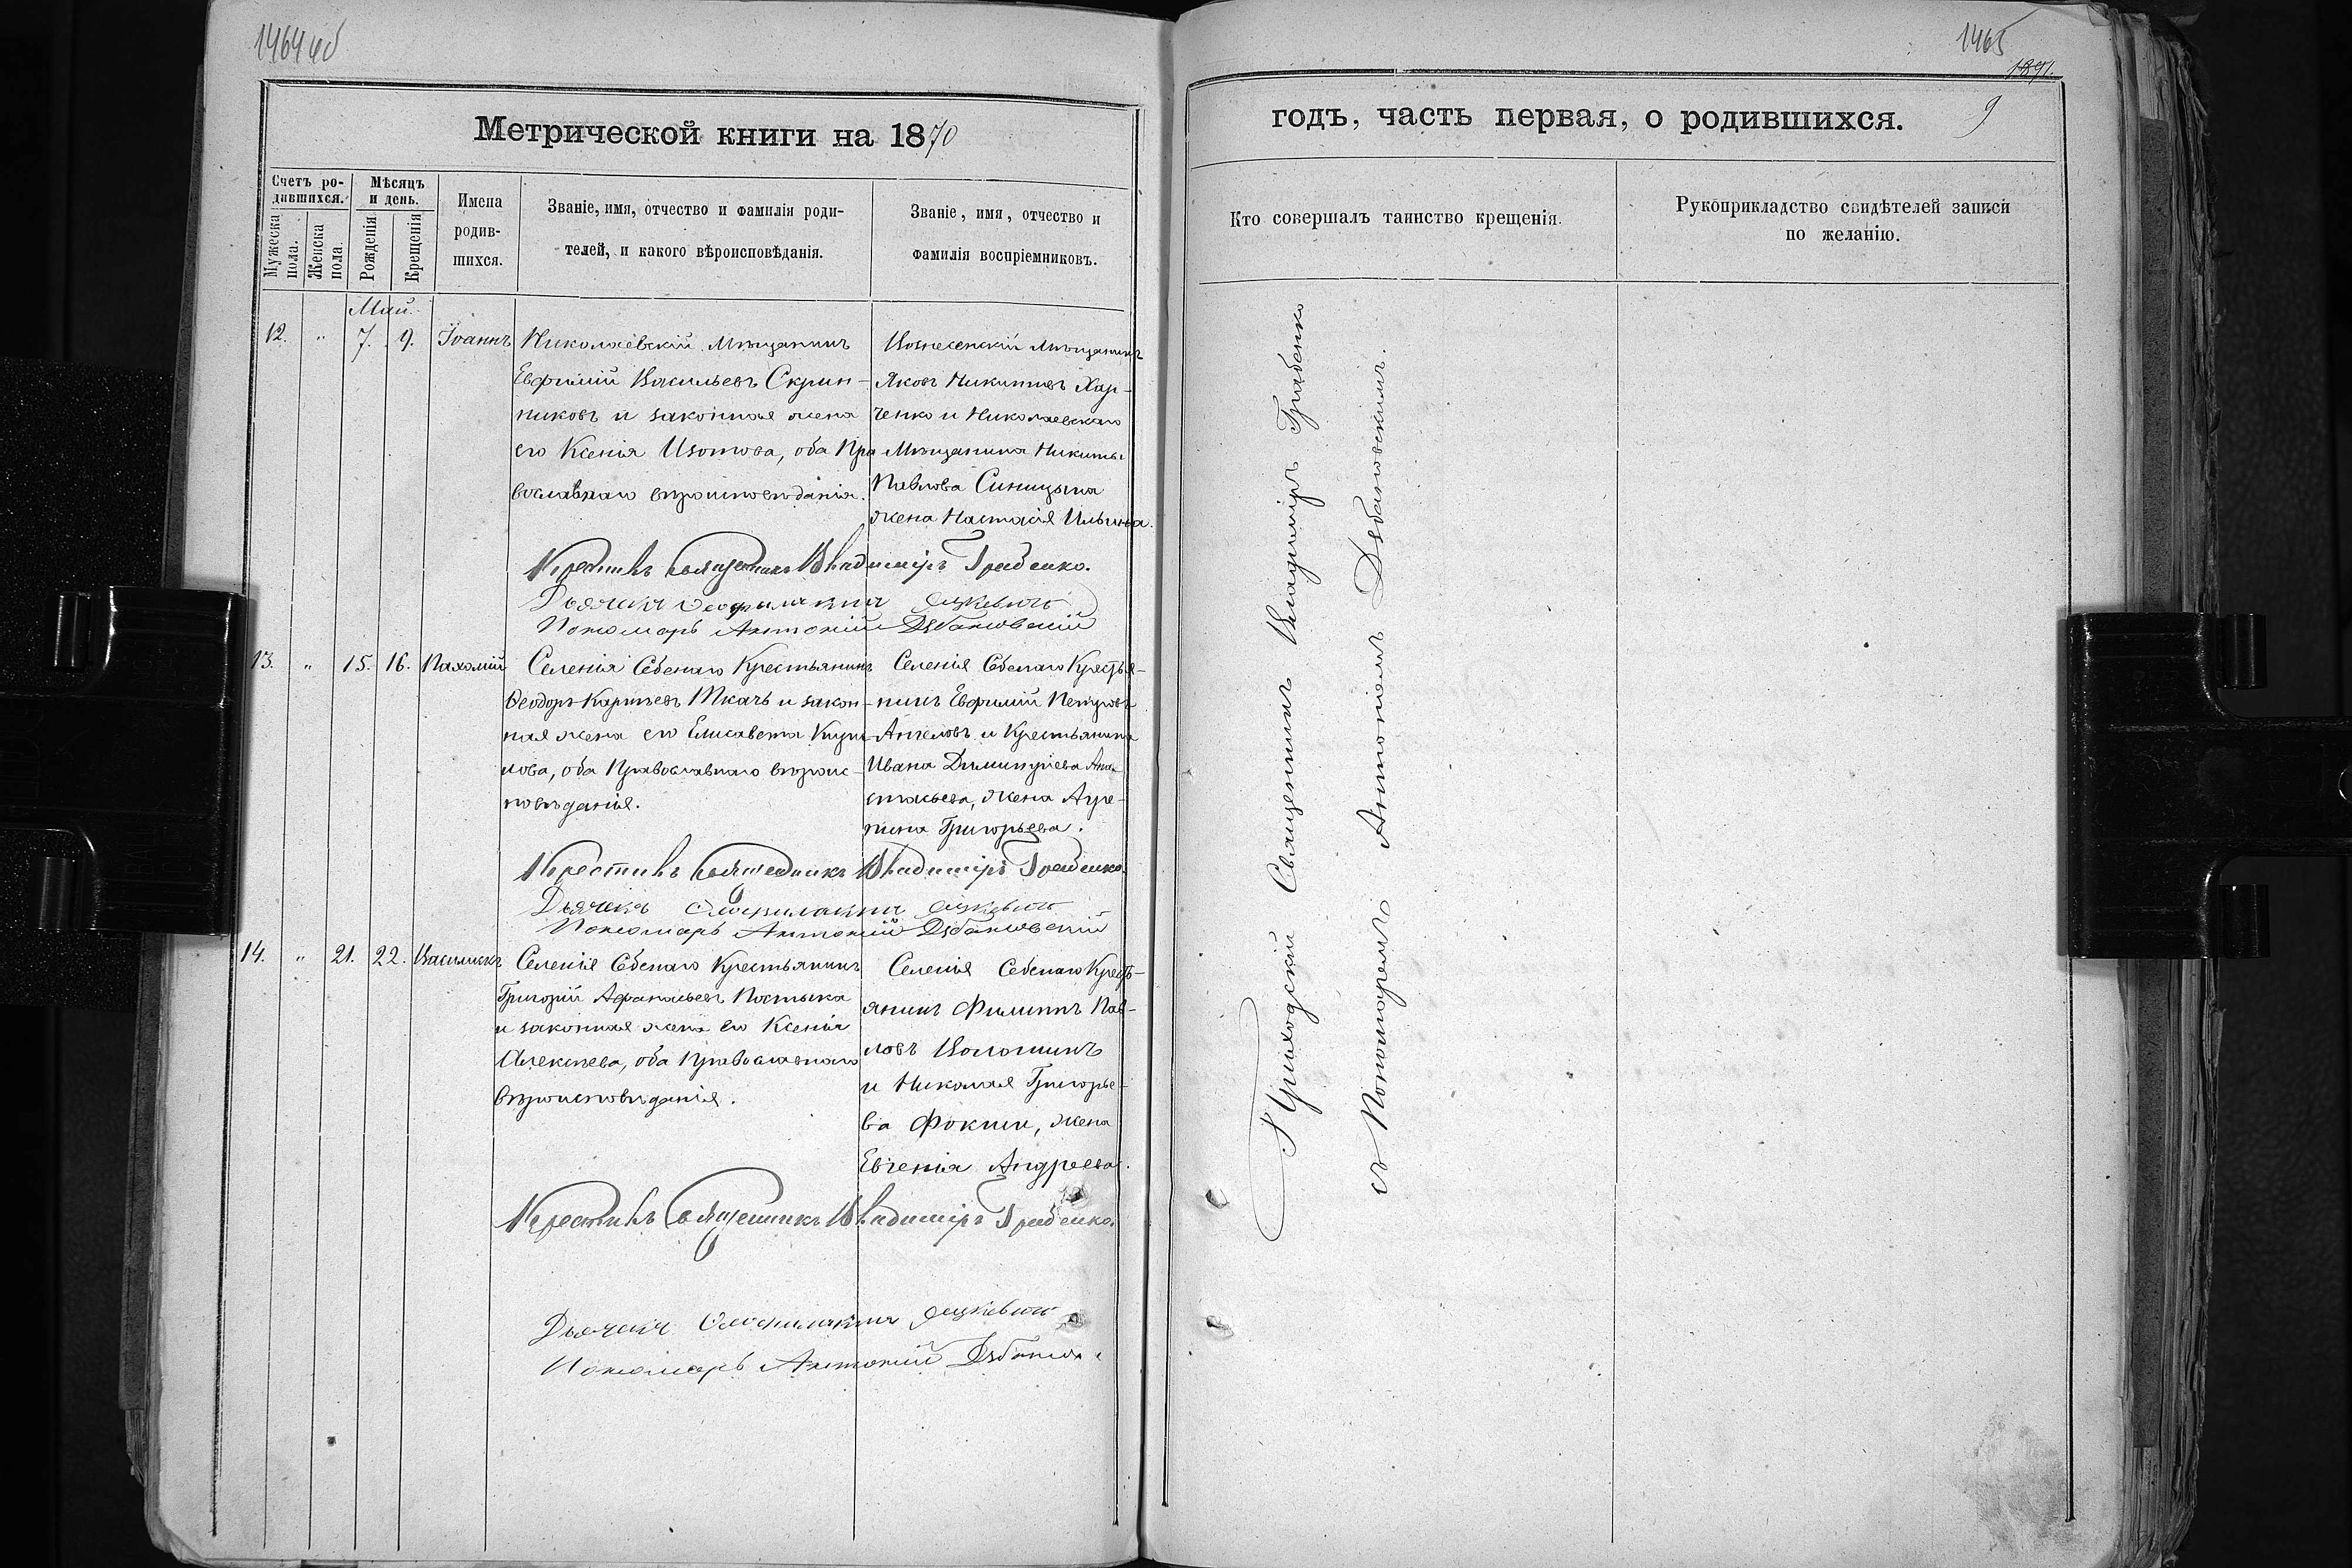 1464 об
Метрической книги на 1870
Счетъ ро-
дившихся.
Мѣсяцъ
и день.
Мужеска
пола.
Женска
пола.
Рожденія
Крещенія
Имена
родив-
шихся.
Званіе, имя, отчество и фамилія роди-
телей, и какого вѣроисповѣданія.
Званіе, имя, отчество и
фамилія воспріемниковъ.
Май.
12. " 7. 9. Іоаннъ
Николаевскій Мѣщанинъ
Евфимій Васильевъ Скрин-
никовъ и законная жена
его Ксенія Изотова, оба Пра
вославнаго вѣроисповѣданія.
Вознесенскій Мѣщанинъ
Яковъ Никитинъ Хар-
ченко и Николаевскаго
Мѣщанина Никиты
Павлова Синицына
жена Настасія Ильина.
Крестилъ Священникъ Владиміръ Грабенко.
Дьячекъ
Пономарь Антоній Дзбановскій
13. " 15. 16. Пахомій
Селенія Себенаго Крестьянинъ
Ѳеодоръ Карпѣевъ Ткачъ и закон-
ная жена его Елисавета
оба Православнаго вѣроис-
повѣданія.
Селенія Себенаго Крестья-
нинъ Евфимій Петровъ
Ангеловъ и Крестьянина
Ивана Димитріева Ана-
стасьева, жена Агре-
пина Григорьева.
Крестилъ Священникъ Владиміръ Грабенко.
Дьячекъ
Пономарь Антоній Дзбановскій
14. " 21. 22. Василискъ
Селенія Себенаго Крестьянинъ
Григорій Афанасьевъ Постыка
и законная жена его Ксенія
Алексѣева, оба Православнаго
вѣроисповѣданія.
Селенія Себенаго Кресть-
янинъ Филиппъ Пав-
ловъ Волошинъ
и Николая Григорье-
ва Фокши, жена
Евгенія Андреева.
Крестилъ Священникъ Владиміръ Грабенко.
Дьячекъ
Пономарь Антоній
1465
1891.
9
годъ, часть первая, о родившихся.
Кто совершалъ таинство крещенія.
Рукоприкладство свидѣтелей записи
по желанію.
Приходскій Священникъ Владиміръ Грабенко
съ Пономаремъ Антоніемъ Дзбановскимъ.